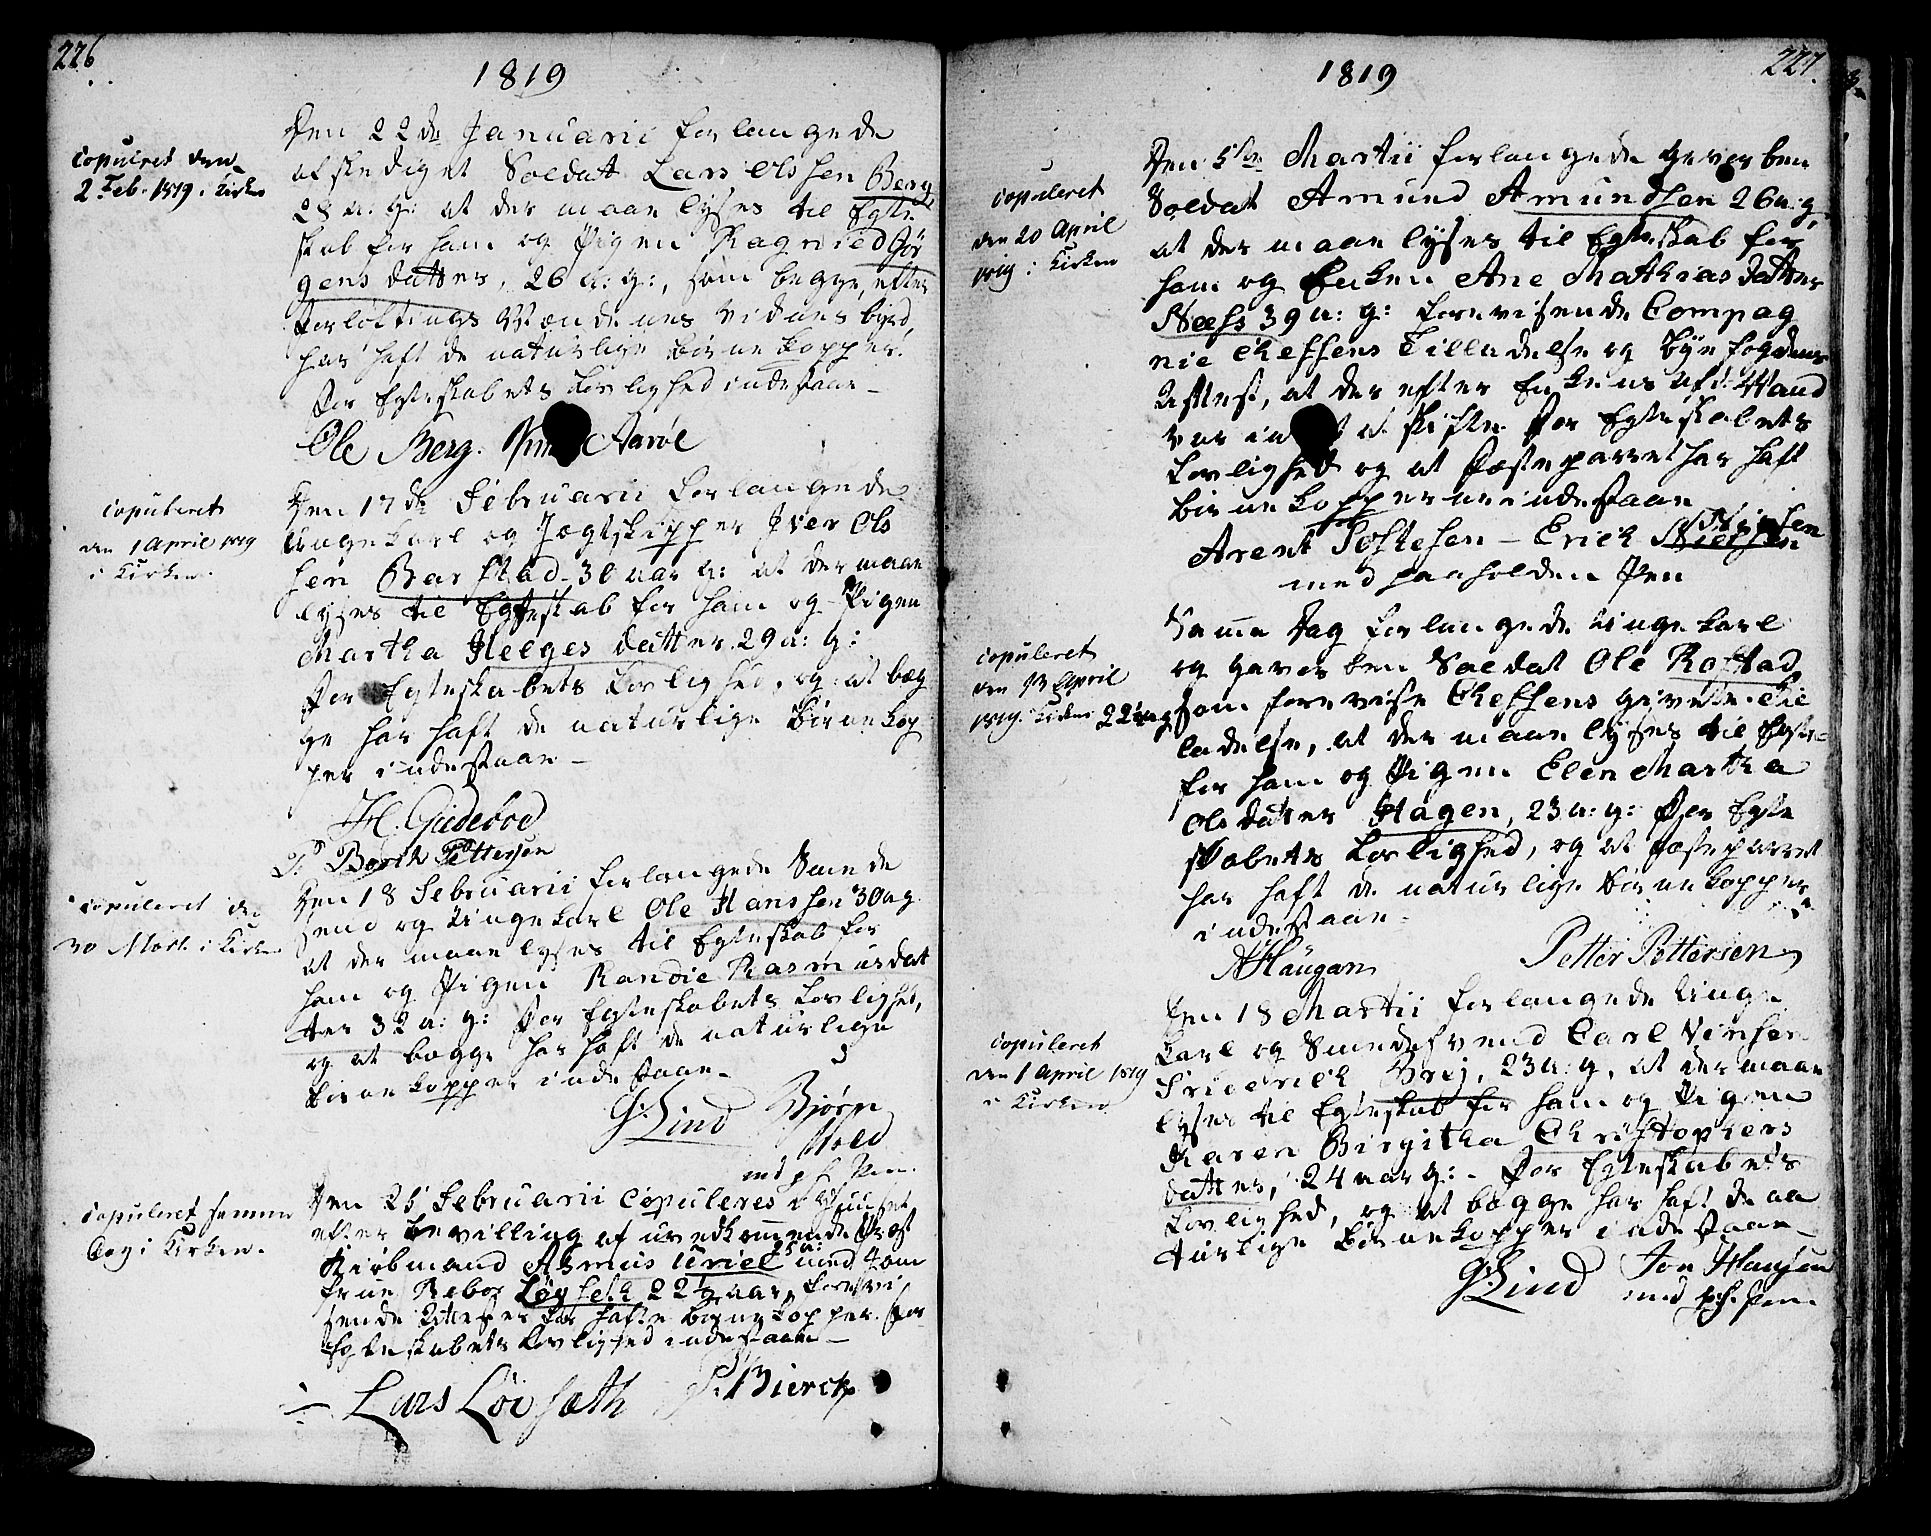 226
1819
copuleret den
2 Feb. 1819 i Kirken
Den 22de Januarii forlangede
afskediget Soldat Lars Olssen Berg
28 a: g: at der maae lyses til Egte
skab for ham og Pigen Ragnild Jör
gensdatter, 26 a: g:, som begge, efter
Forlovnings Vidnes byrd,
har haft de naturlige Börnekopper.
For Egteskabets Lovlighed indestaae
Ole Berg. Aaröe
copuleret
den 1 April 1819
i Kirken.
Den 17de Februarii forlangede
Ungekarl og Jægtskipper Iver Ols
sen Barstad 30 aar g: at der maae
lyses til Egteskab for ham og Pigen
Martha Helges datter 29 a: g:
For Egteskabets Lovlighed, og at beg
ge har haft de naturlige Börnekop
per indestaae
H. Gidebod
P. Borch Pettersen
copuleret den
30 Mart. i Kirken
Den 18 Februarii forlangede Smede
svend og Ungekarl Ole Hanssen 30 a g.
at der maae lyses til Egteskab for
ham og Pigen Randie Rasmusdat
ter 32 a: g: For Egteskabets Lovlighed,
og at begge har haft de naturlige
Börnekopper indestaae
G. Lind Björn
Hold
md p h Pen.
copuleret samme
Dag i Kirken.
Den 25 Februarii copuleres i Huuset
efter bevilling af uvedkommende Præst
Kiöbmand Asmus Uriel 25 a: med Jom
frue Rebor Löyseth 22½ aar, forevi
sende Attester for hafte Börnekopper. For
Egteskabets Lovlighed indestaae
Lars Lövsæth P. Bierck
227.
1819
copuleret
den 20 April
1819 i Kirken
Den 5te Martii forlangede Gevorben
Soldat Amund Amundsen 26 a: g.
at der maae lyses til Egteskab for
ham og Enken Ane Mathias datter
Neess 39 a: g: forevisende Compag
nie Chefsens Tilladelse og Byefogdens
Attest, at der efter Enkens Afd: Mand
var at skifte. For Egteskabets
Lovlighed og at Fæsteparret har haft
Börnekopperne indestaae
Arent Toftesen – Erich Nielsen
med paaholden Pen
copuleret
den 13 April
1819 i Kirken
Samme Dag forlangede Ungekarl
og gevorben Soldat Ole Rostad
22 a g som foreviste Chefsens givne Til
ladelse, at der maae lyses til Egtes-
for ham og Pigen Elen Martha
Ols datter Hagen, 23 a: g: For Egte
skabets Lovlighed, og at Fæsteparret
har haft de naturlige Börnekopper
indestaae.
A Haugan Petter Pettersen
copuleret
den 1 April 1819
i Kirken
Den 18 Martii forlangede Unge
karl og Smedesvend Carl Vinsen
Friderich Brej, 23 a: g. at der maae
lyses til Egteskab for ham og Pigen
Karen Birgitha Christophers
datter, 24 aar g: – For Egteskabets
Lovlighed, og at begge har haft de na
turlige Börnekopper indestaae
G. Lind Jon Hansen
md ph. Pen.